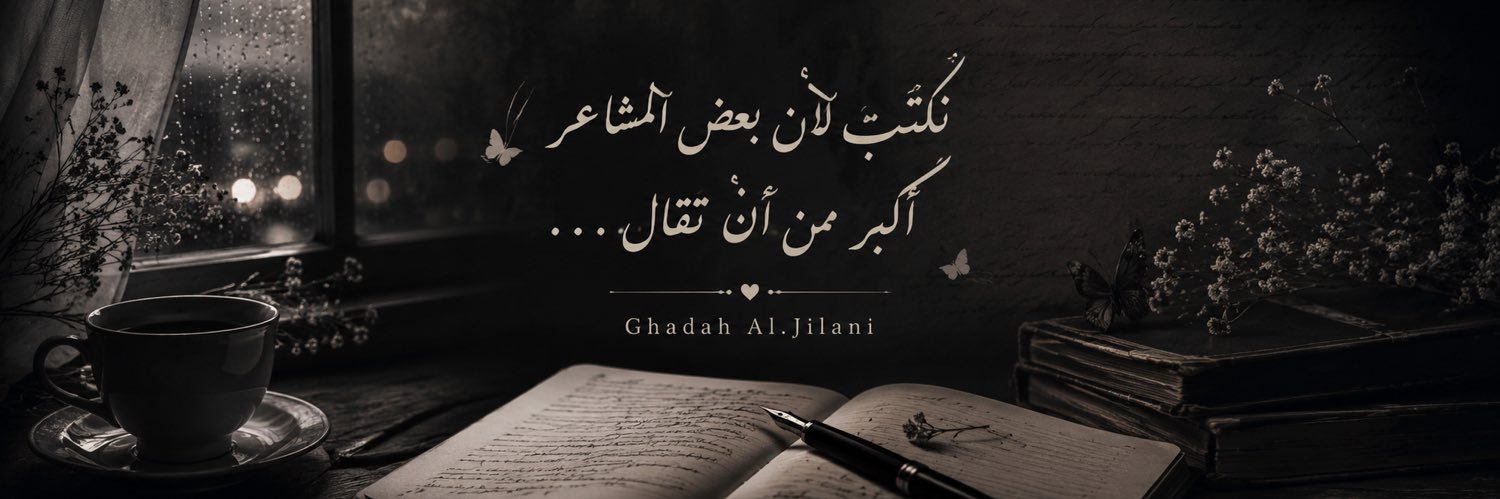 نكتب لأن بعض المشاعر
أكبر ممن أن تقال....
Ghadah Al.Jilani